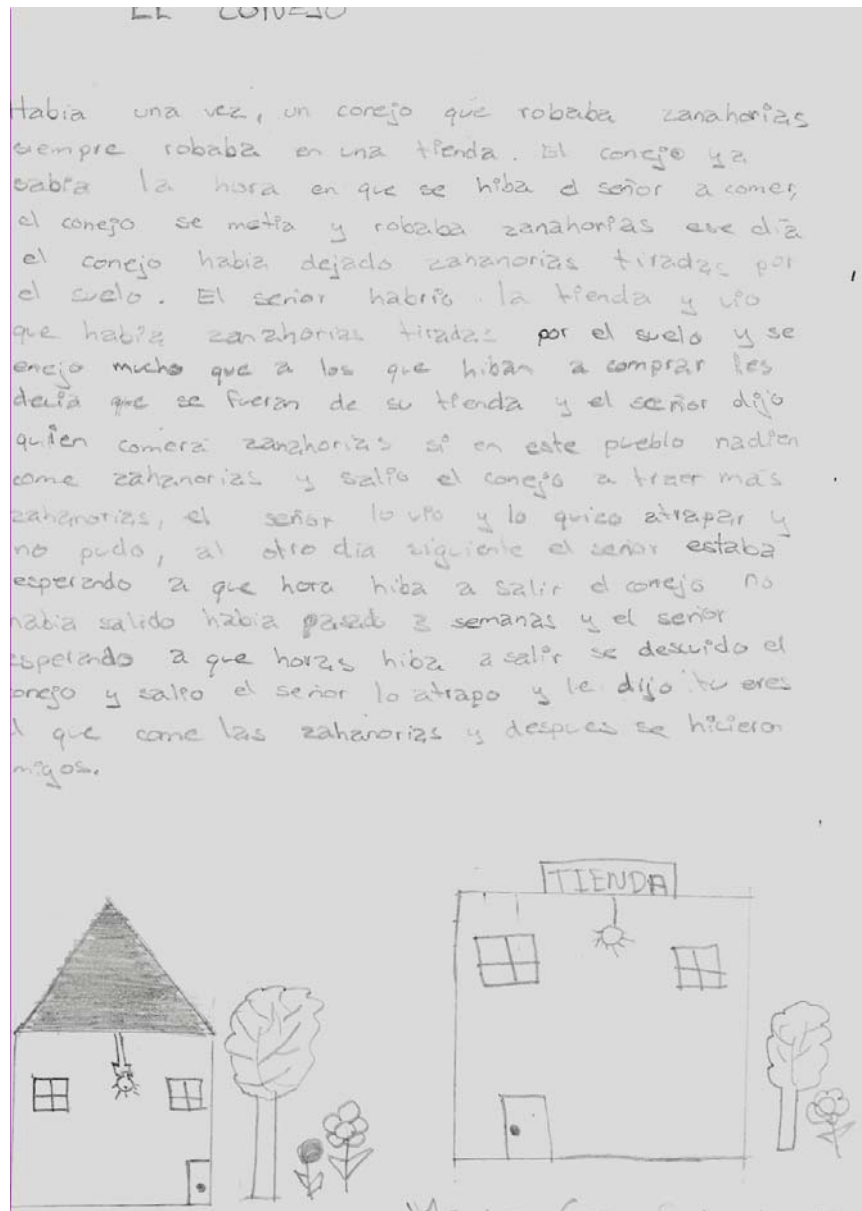 EL CONEJO
Habia una vez, un conejo que robaba zanahorias
siempre robaba en una tienda. El conejo ya
sabia la hora en que se hiba el señor a comer,
el conejo se metia y robaba zanahorias ese dia
el conejo habia dejado zahanorias tiradas por
el suelo. El señor habrio la tienda y vio
que habia zanahorias tiradas por el suelo y se
enojo mucho que a los que hiban a comprar les
decia que se fueran de su tienda y el señor dijo
quien comera zanahorias si en este pueblo nadien
come zahanorias y salio el conejo a traer más
zahanorias, el señor lo vio y lo quico atrapar y
no pudo, al otro dia siguiente el señor estaba
esperando a que hora hiba a salir el conejo no
habia salido habia pasado 3 semanas y el señor
esperando a que horas hiba a salir se descuido el
onejo y salio el señor lo atrapo y le dijo tu eres
l que come las zahanorias y despues se hicieron
migos.
TIENDA